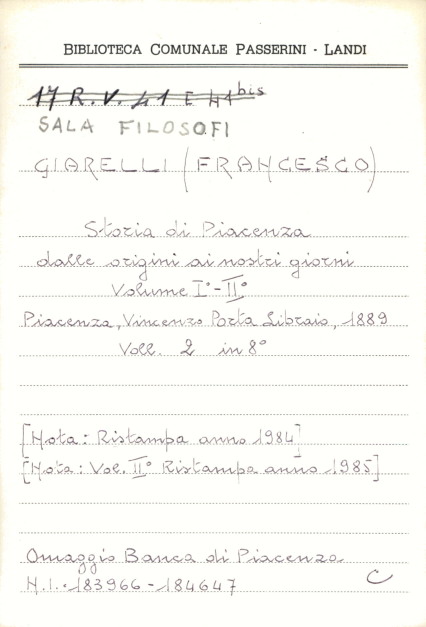 BIBLIOTECA COMUNALE PASSERINI - LANDI
17 R. V. 41 E 41 bis
SALA FILOSOFI
GIARELLI (FRANCESCO)
Storia di Piacenza
dalle origini ai nostri giorni
Volume I° - II°
Piacenza, Vincenzo Porta Libraio, 1889
Voll. 2 in 8°
[Nota: Ristampa anno 1984]
[Nota: Vol. II° Ristampa anno 1985]
Omaggio Banca di Piacenza
N.I. 183966 - 184647
C